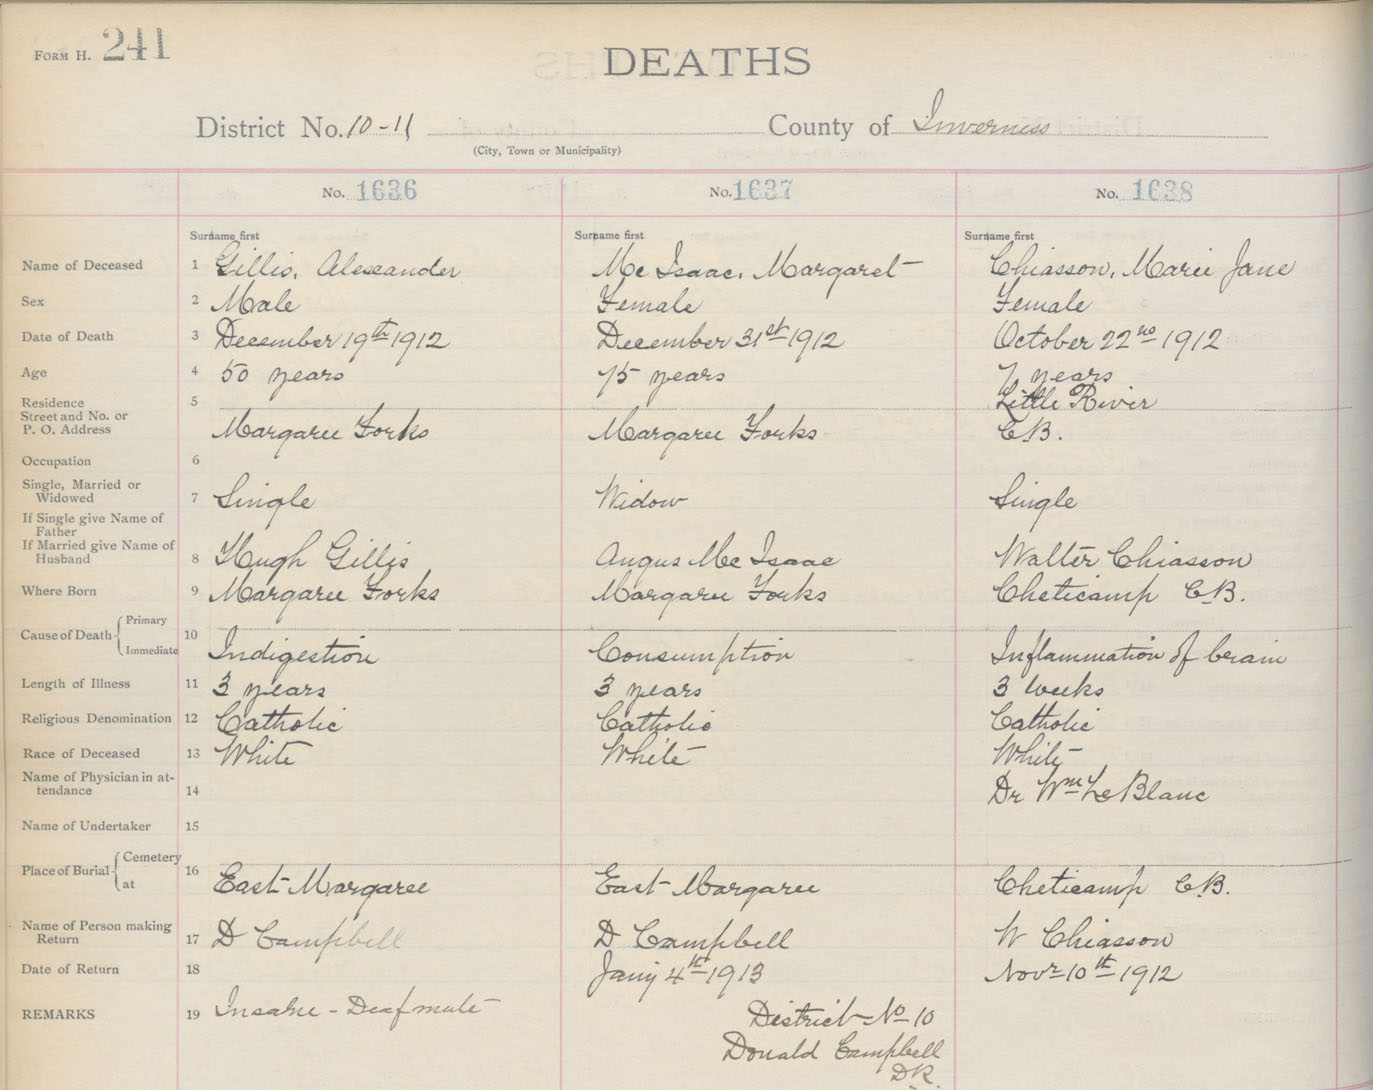 FORM H. 241
DEATHS
District No. 10-11 County of Inverness
(City, Town or Municipality)
No. 1636 No. 1637 No. 1638
Surname first Surname first Surname first
Name of Deceased 1 Gillis, Alexander Mc Isaac, Margaret Chiasson, Marie Jane
Sex 2 Male Female Female
Date of Death 3 December 19th 1912 December 31st 1912 October 22nd 1912
Age 4 50 years 75 years 7 years
Residence 5 Little River
Street and No. or
P. O. Address Margaree Forks Margaree Forks C.B.
Occupation 6
Single, Married or
Widowed 7 Single Widow Single
If Single give Name of
Father
If Married give Name of
Husband 8 Hugh Gillis Angus Mc Isaac Walter Chiasson
Where Born 9 Margaree Forks Margaree Forks Cheticamp C.B.
Cause of Death { Primary
Immediate 10 Indigestion Consumption Inflammation of brain
Length of Illness 11 3 years 3 years 3 weeks
Religious Denomination 12 Catholic Catholic Catholic
Race of Deceased 13 White White White
Name of Physician in at-
tendance 14 Dr Wm Le Blanc
Name of Undertaker 15
Place of Burial { Cemetery
at 16 East Margaree East Margaree Cheticamp C.B.
Name of Person making
Return 17 D Campbell D Campbell W Chiasson
Date of Return 18 Jany 4th 1913 Novr 10th 1912
REMARKS 19 Insane - Deafmute District No 10
Donald Campbell
D.R.